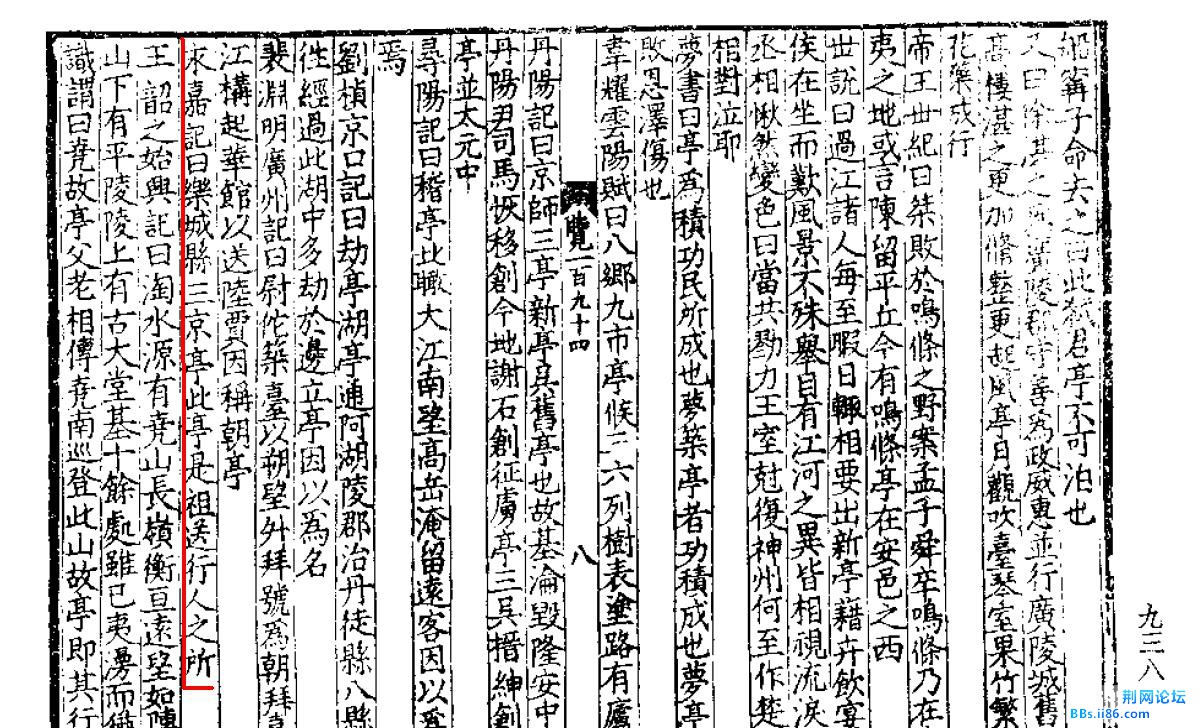 船寗子命去之曰此弒君亭不可泊也
又曰徐湛之為廣陵太守善為政威惠並行廣陵城舊
髙樓湛之更加脩整更起風亭月觀吹臺琴室果竹繁
花藥成行
帝王世紀曰桀敗於鳴條之野案孟子舜卒鳴條乃在
夷之地或言陳留平丘今有鳴條亭在安邑之西
世說曰過江諸人每至暇日輙相要出新亭藉卉飲宴
侯在坐而歎風景不殊舉目有江河之異皆相視流淚
丞相愀然變色曰當共勠力王室尅復神州何至作楚
相對泣耶
夢書曰亭為積功民所成也夢築亭者功積成也夢亭
敗恩澤傷也
韋耀雲陽賦曰八郷九市亭候三六列樹表塗路有廬
覽一百九十四 八
丹陽記曰京師三亭新亭吳舊亭也故基淪毀隆安中
丹陽尹司馬恢移創今地謝石創征虜亭三吳搢紳創
亭並太元中
尋陽記曰稽亭北瞰大江南望高岳淹留遠客因以為
焉
劉楨京口記曰劫亭湖亭通阿湖陵郡治丹徒縣八縣
徃經過此湖中多劫於邊立亭因以為名
裴淵明廣州記曰尉佗築臺以朔望升拜號為朝拜
江構起華館以送陸賈因稱朝亭
永嘉記曰樂城縣三京亭此亭是祖送行人之所
王韶之始興記曰淘水源有堯山長嶺衡亘遠望如陳
山下有平陵陵上有古大堂基十餘處雖已夷漫而猶
識謂曰堯故亭父老相傳堯南巡登此山故亭即其行
九三八
荆网论坛
BBs.ii86.com